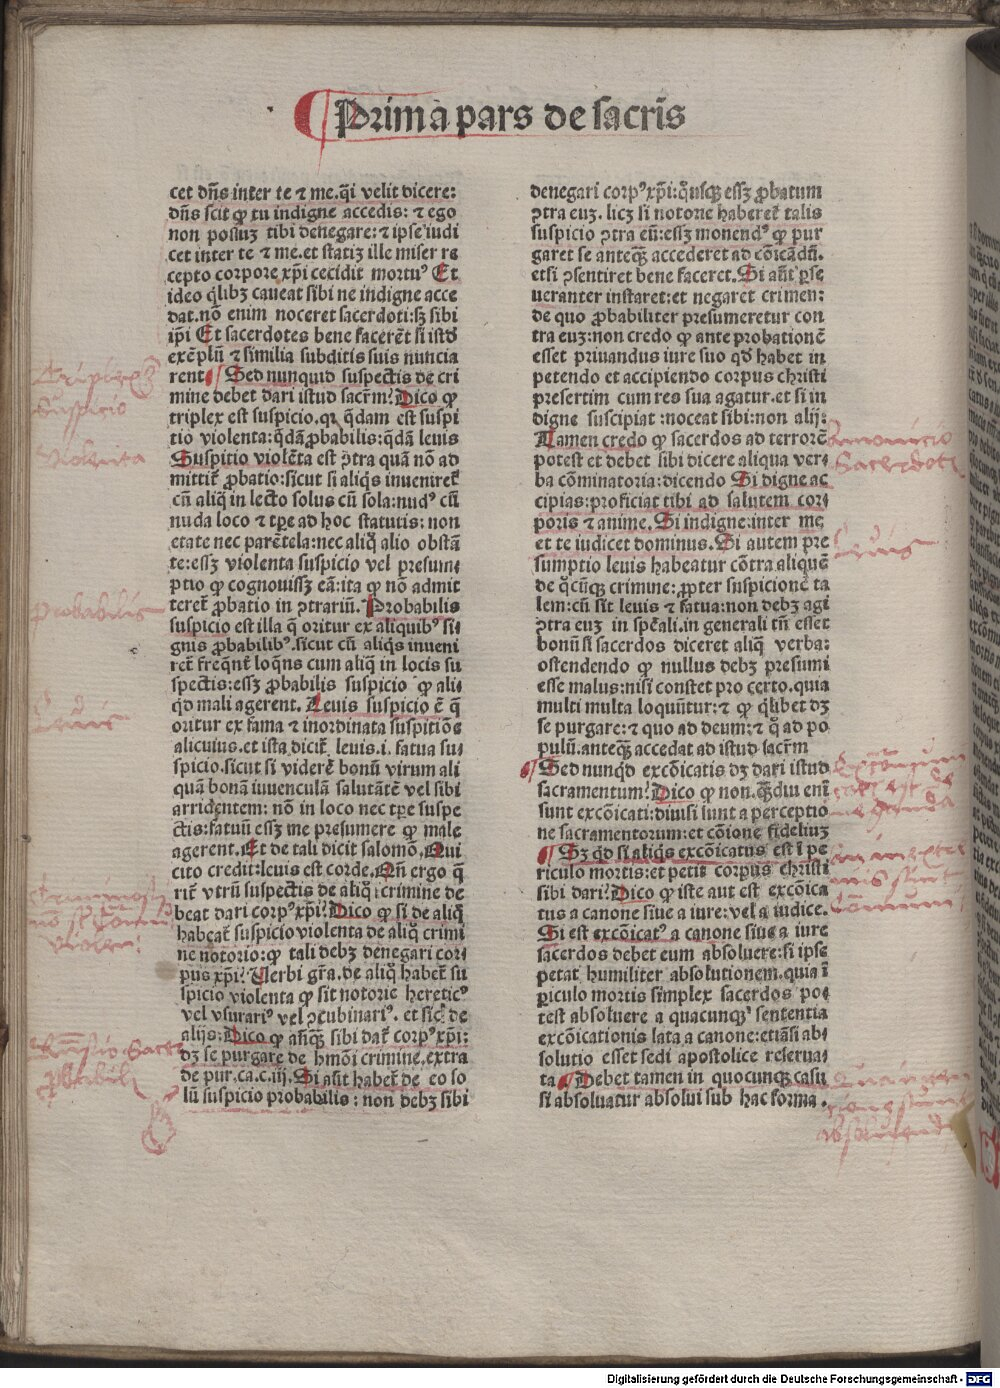 Prima pars de sacris
cet dn̄s inter te ⁊ me. q̄i velit dicere:
dn̄s scit ꝙ tu indigne accedis: ⁊ ego
non possuꝫ tibi denegare: ⁊ ipse iudi
cet inter te ⁊ me. et statiꝫ ille miser re
cepto corpore xp̄i cecidit mortuꝰ Et
ideo q̄libꝫ caueat sibi ne indigne acce
dat. nō enim noceret sacerdoti: sꝫ sibi
ip̄i Et sacerdotes bene facerēt si istd̄
exēplū ⁊ similia subditis suis nuncia
rent Sed nunquid suspectis de cri
mine debet dari istud sacr̄m? Dico ꝙ
triplex est suspicio. qꝛ q̄dam est suspi
tio violenta: q̄dā ꝓbabilis: q̄dā leuis
Suspitio violēta est ꝯtra quā nō ad
mittit̄ ꝓbatio: sicut si aliq̄s inueniret̄
cū aliq̄ in lecto solus cū sola: nudꝰ cū
nuda loco ⁊ tꝑe ad hoc statutis: non
etate nec parētela: nec aliq̄ alio obstā
te: essꝫ violenta suspicio vel presum-
ptio ꝙ cognouissꝫ eā: ita ꝙ nō admit
teret̄ ꝓbatio in ꝯtrariū. Probabilis
suspicio est illa q̄ oritur ex aliquibꝰ si-
gnis ꝓbabilibꝰ. sicut cū aliq̄s inueni
ret̄ freq̄nt̄ loq̄ns cum aliq̄ in locis su
spectis: essꝫ ꝓbabilis suspicio ꝙ ali-
qd̄ mali agerent. Leuis suspicio ē q̄
oritur ex fama ⁊ inordinata suspitiōe
alicuius. et ista dicit̄ leuis. i. fatua su-
spicio. sicut si viderē bonū virum ali
quā bonā iuuenculā salutātē vel sibi
arridentem: nō in loco nec tꝑe suspe
ctis: fatuū essꝫ me presumere ꝙ male
agerent. Et de tali dicit salomō. Qui
cito credit: leuis est corde. Qn̄ ergo q̄
rit̄ vtrū suspectis de aliq̄ crimine de
beat dari corpꝰ xp̄i? Dico ꝙ si de aliq̄
habeat̄ suspicio violenta de aliq̄ crimi
ne notorio: ꝙ tali debꝫ denegari cor-
pus xp̄i? Uerbi gr̄a. de aliq̄ habet̄ su
spicio violenta ꝙ sit notorie hereticꝰ
vel vsurariꝰ vel ꝯcubinariꝰ. et sic̄ de
alijs: Dico ꝙ an̄q̄ꝫ sibi dat̄ corpꝰ xp̄i:
dꝫ se purgare de hm̄oi crimine. extra
de pur. ca. c. iij. Si aūt habet̄ de eo so
lū suspicio probabilis: non debꝫ sibi
denegari corpꝰ xp̄i: q̄usq̄ꝫ essꝫ ꝓbatum
ꝯtra euꝫ. licꝫ si notorie haberet̄ talis
suspicio ꝯtra eū: essꝫ monendꝰ ꝙ pur
garet se anteq̄ꝫ accederet ad cōicādū.
etsi ꝯsentiret bene faceret. Si aūt ꝑse
ueranter instaret: et negaret crimen:
de quo ꝓbabiliter presumeretur con
tra euꝫ: non credo ꝙ ante probationē
esset priuandus iure suo qd̄ habet in
petendo et accipiendo corpus christi
presertim cum res sua agatur. et si in
digne suscipiat: noceat sibi: non alij:
Tamen credo ꝙ sacerdos ad terrorē
potest et debet sibi dicere aliqua ver-
ba cōminatoria: dicendo Si digne ac
cipias: proficiat tibi ad salutem cor-
poris ⁊ anime. Si indigne: inter me
et te iudicet dominus. Si autem pre
sumptio leuis habeatur cōtra aliquē
de q̄cūq̄ꝫ crimine: ꝓpter suspicionē ta
lem: cū sit leuis ⁊ fatua: non debꝫ agi
ꝯtra euꝫ in spēali. in generali tn̄ esset
bonū si sacerdos diceret aliq̄ verba:
ostendendo ꝙ nullus debꝫ presumi
esse malus: nisi constet pro certo. quia
multi multa loquūtur: ⁊ ꝙ q̄libet dꝫ
se purgare: ⁊ quo ad deum: ⁊ q̄ ad po
pulū. anteq̄ꝫ accedat ad istud sacr̄m
Sed nunqd̄ excōicatis dꝫ dari istud
sacramentum? Dico ꝙ non. q̄ꝫdiu enī
sunt excōicati: diuisi sunt a perceptio
ne sacramentorum: et cōione fideliuꝫ
Sꝫ qd̄ si aliq̄s excōicatus est ī pe
riculo mortis: et petit corpus christi
sibi dari? Dico ꝙ iste aut est excōica
tus a canone siue a iure: vel a iudice.
Si est excōicatꝰ a canone siue a iure
sacerdos debet eum absoluere: si ipse
petat humiliter absolutionem. quia ī
ꝑiculo mortis simplex sacerdos po-
test absoluere a quacunq̄ꝫ sententia
excōicationis lata a canone: etiāsi ab-
solutio esset sedi apostolice reserua-
ta Debet tamen in quocunq̄ꝫ casu
si absoluatur absolui sub hac forma.
Suspicio
Violenta
Probabilis
Leuis
Leuis
Digitalisierung gefördert durch die Deutsche Forschungsgemeinschaft - DFG